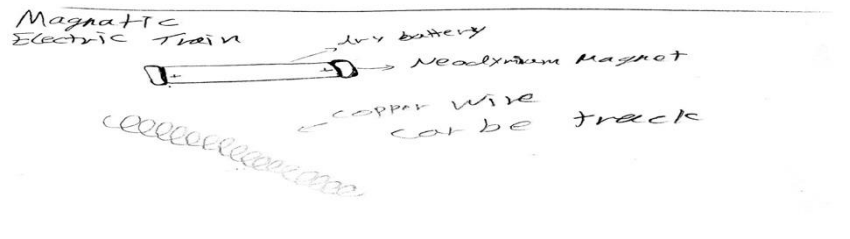 Magnatic
Electric Train
dry battery
+ +
Neodymium Magnet
copper wire
car be track